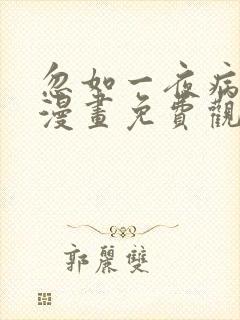 忽如一夜病
漫畫免費觀
郭麗雙